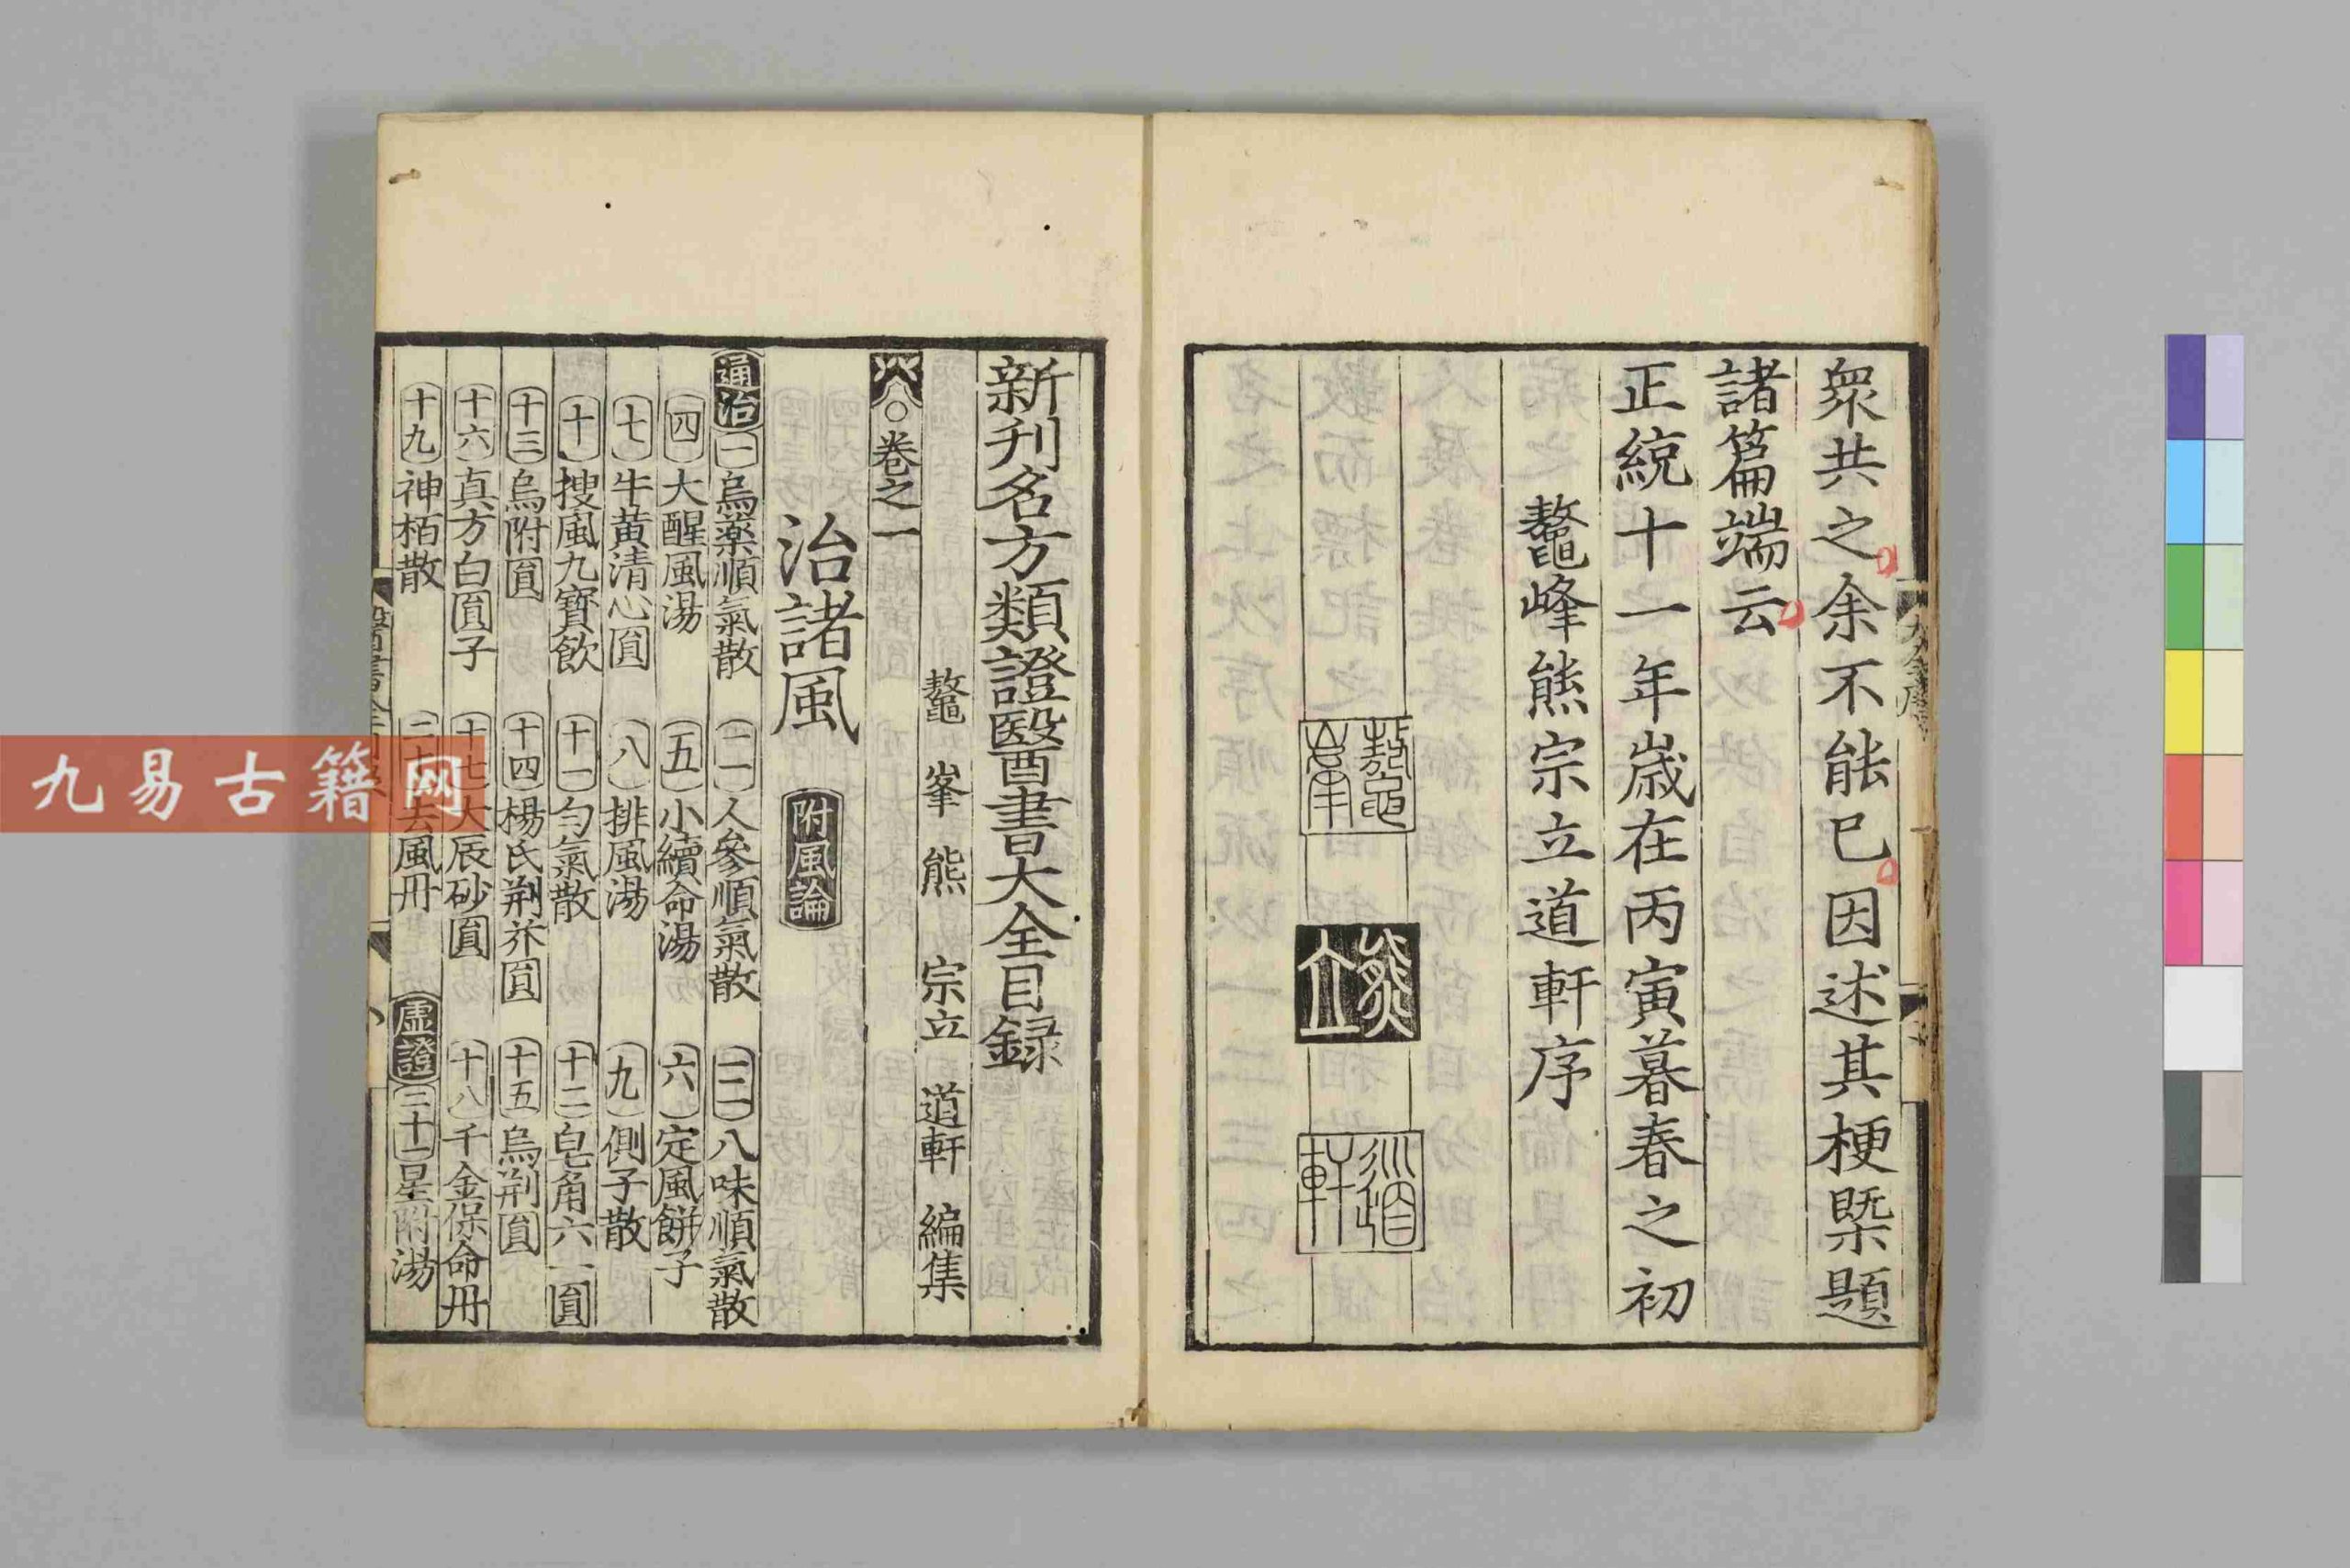 衆共之余不能已因述其梗槩題
諸篇端云
正統十一年歳在丙寅暮春之初
鼇峰熊宗立道軒序
鼇峯
熊立
道軒
新刋名方類證醫書大全目録
鼇峯熊宗立道軒編集
○卷之一
治諸風 附風論
通治 一 烏藥順氣散 二 人參順氣散 三 八味順氣散
四 大醒風湯 五 小續命湯 六 定風餅子
七 牛黃清心圓 八 排風湯 九 側子散
十 搜風九寶飲 十一 勻氣散 十二 皂角六一圓
十三 烏附圓 十四 楊氏荆芥圓 十五 烏荆圓
十六 真方白圓子 十七 大辰砂圓 十八 千金保命丹
十九 神柏散 二十 去風丹 虛證 二十一 星附湯
九易古籍网